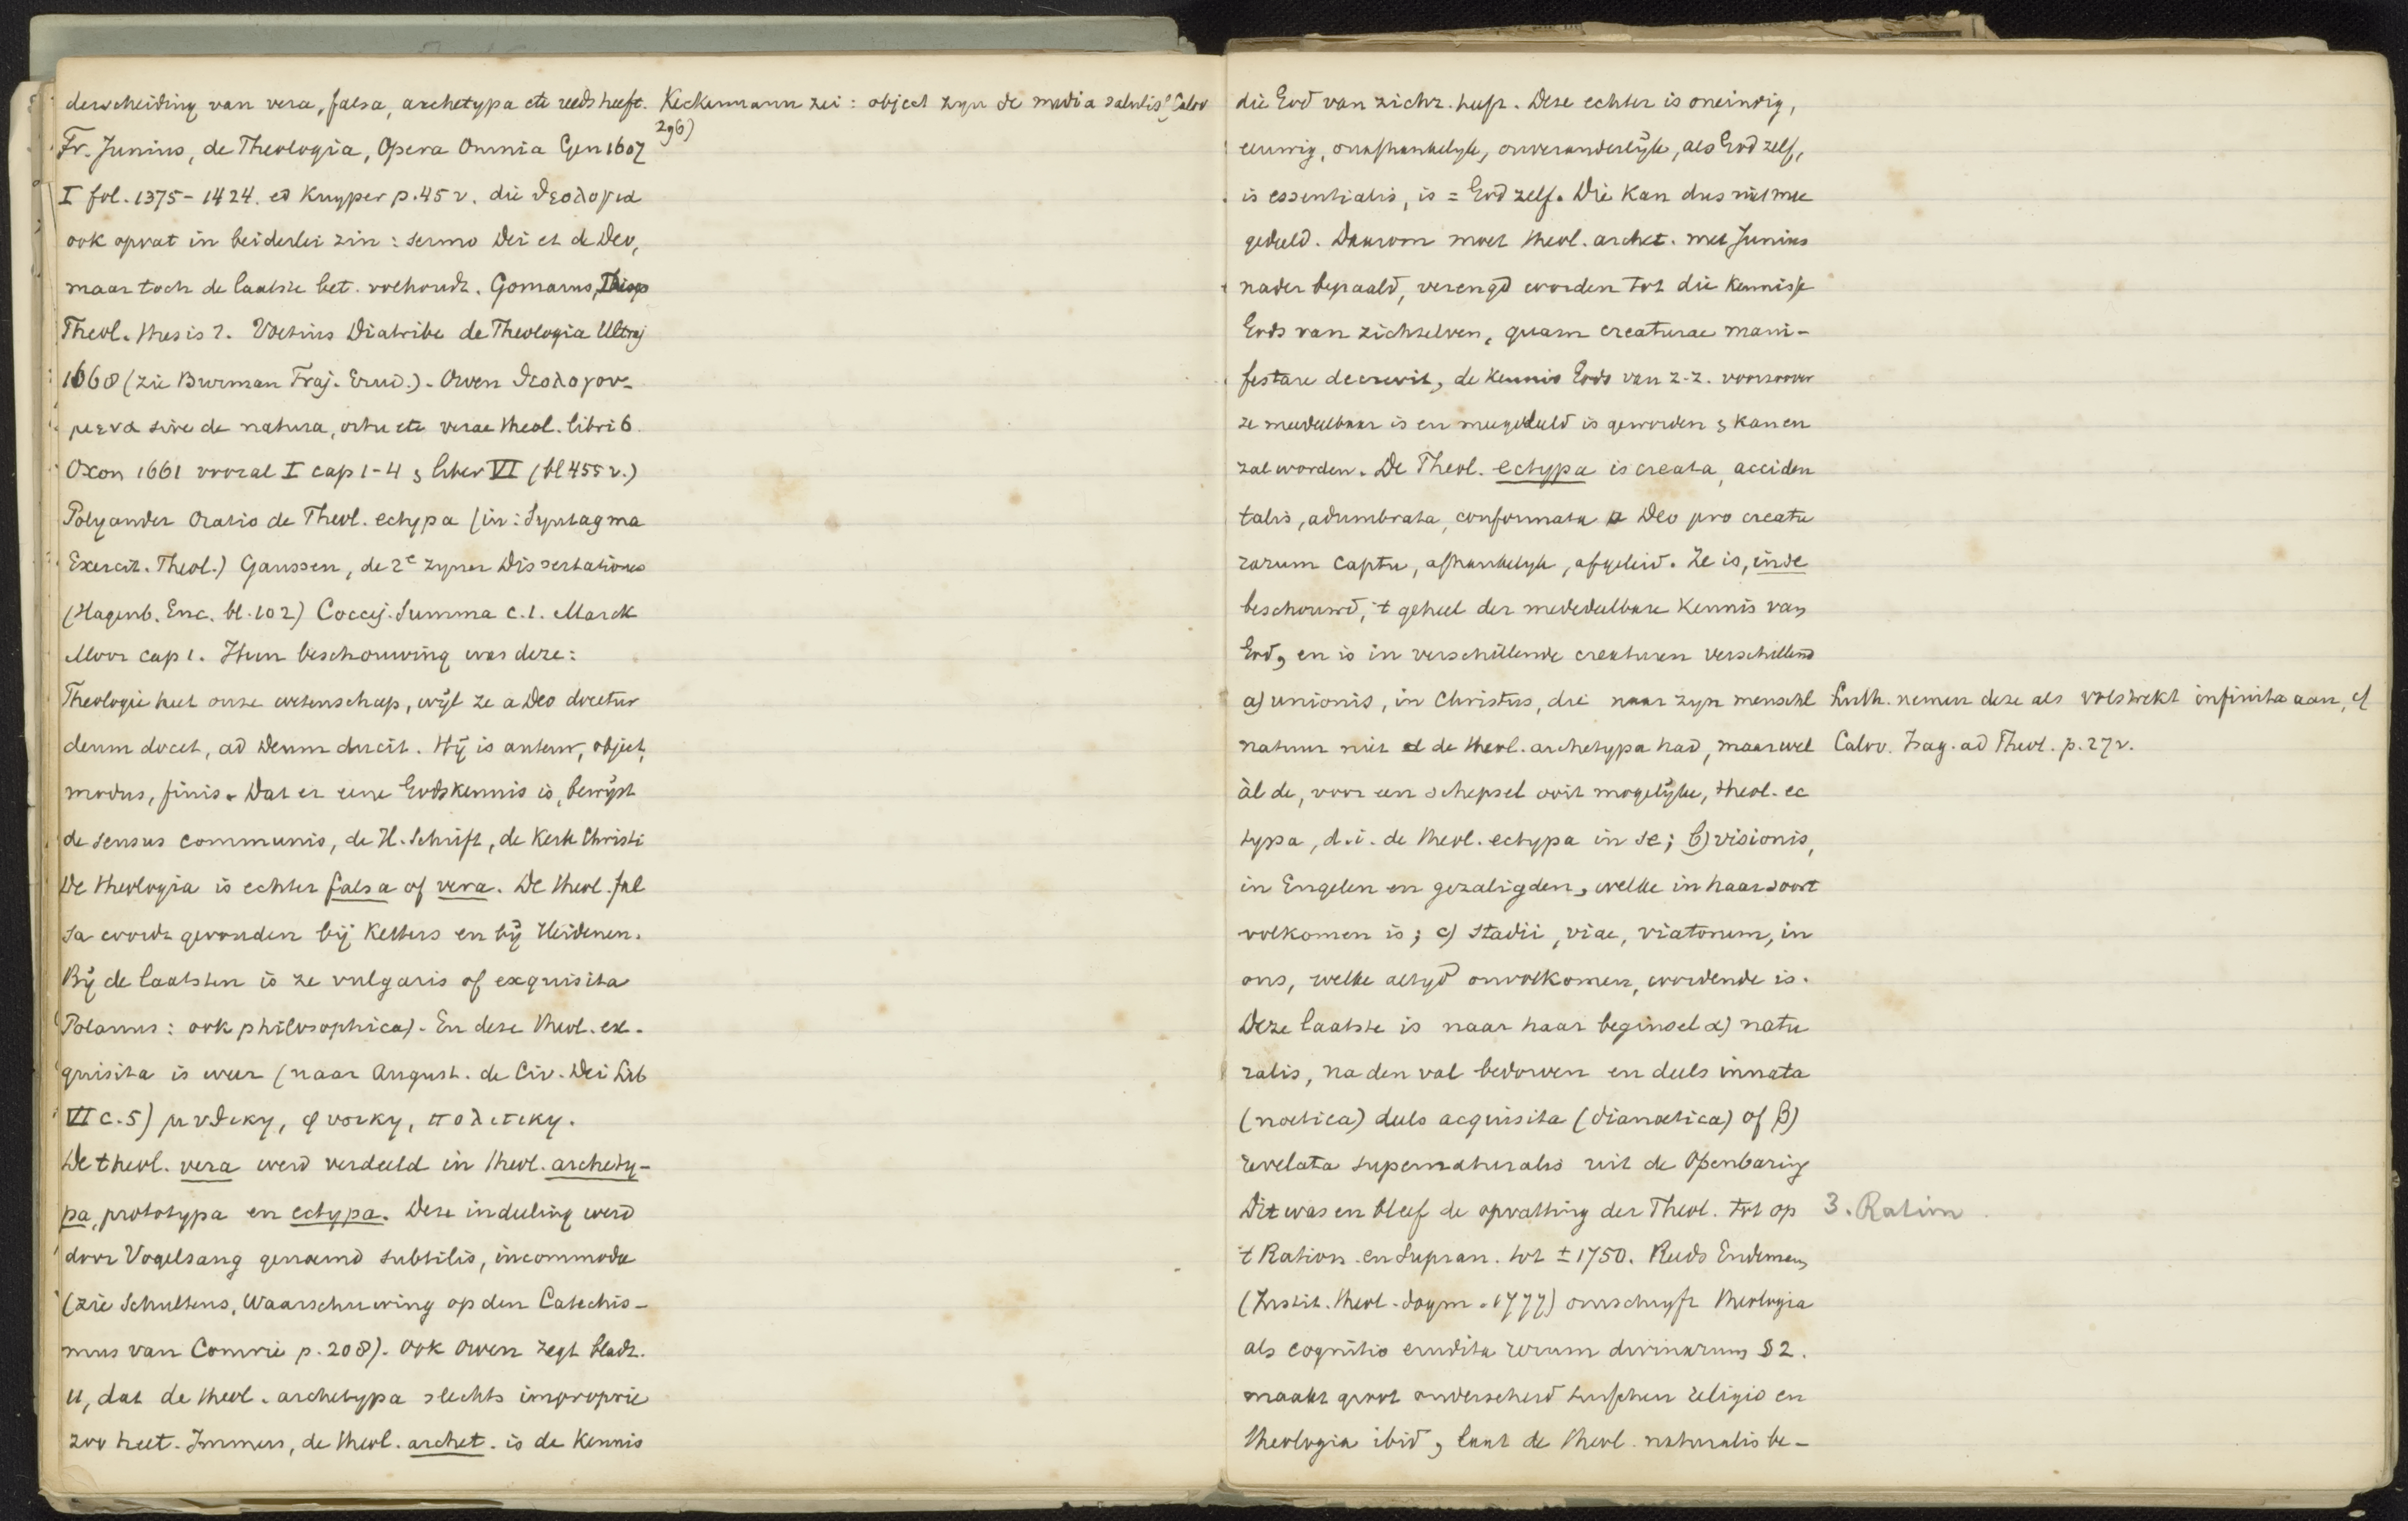 derscheiding van vera, falsa, archetypa etc reeds heeft.
Fr. Junius, de Theologia, Opera Omnia Gen 1607
I fol. 1375-1424. ed Kuyper p. 45 v. die θεολογια
ook opvat in beiderlei zin: sermo Dei et de Deo,
maar toch de laatste bet. voehoudt. Gomarus, Disp
Theol. thesis 2. Voetius Diatribe de Theologia Ultraj
1668 (zie Burman Traj. Erud.). Owen θεολογου-
μενα sive de natura, ortu etc verae theol. libri 6.
Oxon 1661 vooral I cap 1-4 , liber VI (bl 455 v.)
Polyander Oratio de Theol. ectypa (in: Syntagma
Exercit. Theol.) Gaussen, de 2e zyner Dissertationes
(Hagenb. Enc. bl. 102) Coccej. Summa c. 1. Marck
Moor cap 1. Hun beschouwing was deze:
Theologie heet onze wetenschap, wijl ze a Deo docetur
deum docet, ad Deum ducit. Hij is auteur, object,
modus, finis. Dat er eene Godskennis is, bewijst
de sensus communis, de H. Schrift, de Kerk Christi
De theologia is echter falsa of vera. De theol. fal
sa wordt gevonden bij Ketters en bij Heidenen.
Bij de laatsten is ze vulgaris of exquisita
Polanus: ook philosophica). En deze theol. ex-
quisita is weer (naar August. de Civ. Dei Lib
VI c. 5) μυθικη, φυσικη, πολιτικη.
De theol. vera werd verdeeld in theol. archety-
pa, prototypa en ectypa. Deze indeeling werd
door Vogelsang genoemd subtilis, incommoda
(zie Schultens, Waarschuwing op den Catechis-
mus van Comrie p. 208). Ook Owen zegt bladz.
11, dat de theol. archetypa slechts improprie
zoo heet. Immers, de theol. archet. is de kennis
Keckermann zei: object zyn de media salutis, Calov
296)
die God van zichz. heeft. Deze echter is oneindig,
eeuwig, onafhankelyk, onveranderlyk, als God zelf,
is essentialis, is = God zelf. Die kan dus niet mee
gedeeld. Daarom moet theol. archet. met Junius
nader bepaald, verengd worden tot die kennisse
Gods van zichzelven, quam creaturae mani-
festare decrevit, de kennis Gods van z.z. voorzoover
ze mededeelbaar is en meegedeeld is geworden , kan en
zal worden. De Theol. ectypa is creata, acciden
talis, adumbrata, conformata a Deo pro creatu
rarum captu, afhankelyk, afgeleid. Ze is, in se
beschouwd, 't geheel der mededeelbare kennis van
God, en is in verschillende creaturen verschillend
a) unionis, in Christus, die naar zyn menschl
natuur niet de theol. archetypa had, maar wel
àl de, voor een schepsel ooit mogelijke, theol. ec
typa, d.i. de theol. ectypa in se; b) visionis,
in Engelen en gezaligden, welke in haar soort
volkomen is; c) stadii, viae, viatorum, in
ons, welke altyd onvolkomen, wordende is.
Deze laatste is naar haar beginsel α) natu
ralis, na den val bedorven en deels innata
(noetica) deels acquisita (dianoetica) of β)
revelata supernaturalis uit de Openbaring
Dit was en bleef de opvatting der Theol. tot op
't Ration. en Supran. tot ± 1750. Reeds Endeman
(Instit. theol. dogm. 1777) omschrijft theologia
als cognitio erudita rerum divinarum § 2.
maakt groot onderscheid tusschen religio en
theologia ibid , laat de theol. naturalis be-
Luth. nemen deze als volstrekt infinita aan, cf
Calov. Isag. ad Theol. p. 27 v.
3. Ration